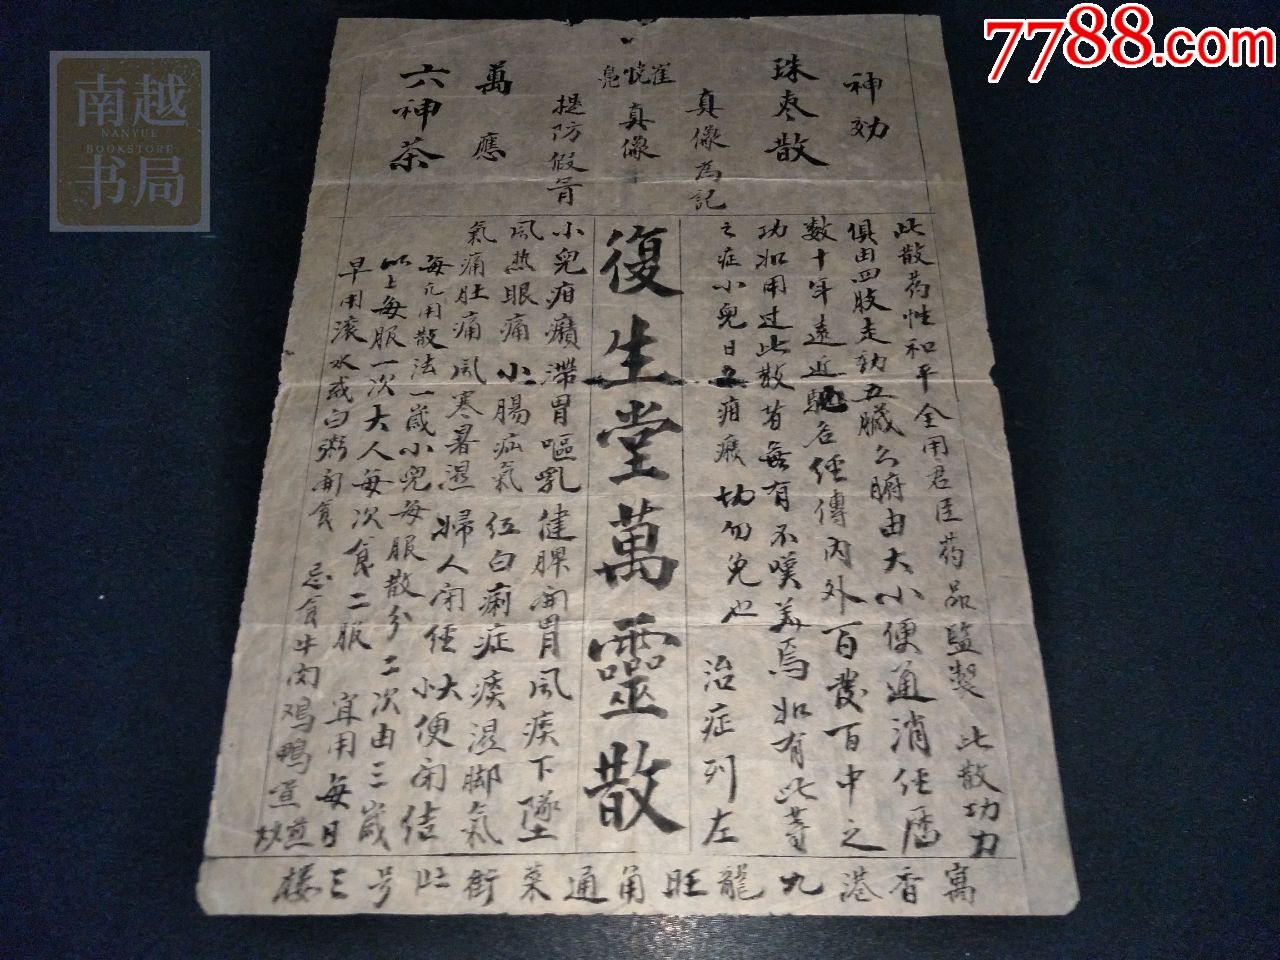 7788.com
南越
NANYUE
BOOKSTORE
书局
神効
珠枣散
真像為記
崔
真像
提防假冒
萬應
六神茶
此散药性和平全用君臣药品監製 此散功力
俱由四肢走 五臟六腑由大小便通消 經歷
數十年遠近馳名經傳內外百發百中之
功如用过此散者無有不嘆美焉如有此等
之症小兒日 疳 切勿免也 治症列左
復生堂萬靈散
小兒疳癪滯胃嘔乳健脾開胃風痰下墜
風热眼痛小腸疝氣紅白痢症痰濕脚氣
氣痛肚痛風寒暑濕婦人闭經大小便闭结
每凡用散法一歲小兒每服散分二次由三歲
以上每服一次大人每次食二服 宜用每日
早用滚水或白粥開食 忌食牛肉鸡鸭煎炒
寓香港九龍旺角通菜街 号三楼